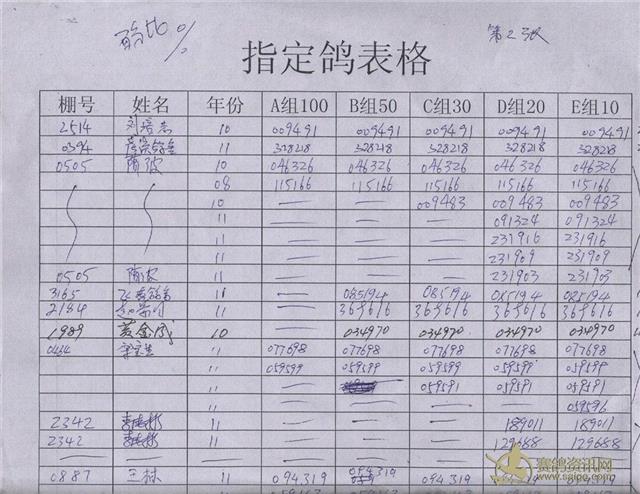 第2张
指定鸽表格
棚号 姓名 年份 A组100 B组50 C组30 D组20 E组10
2514 10 009491 009491 009491 009491 009491
0394 11 328218 328218 328218 328218 328218
0505 10 046326 046326 046326 046326 046326
08 115166 115166 115166 115166 115166
10 — — 009483 009483 009483
11 — — — 091324 091324
11 — — — 231916 231916
11 — — — 231909 231909
0505 11 — — — 231903 231903
3165 11 — 085194 085194 085194 085194
2184 11 — 365616 365616 365616 365616
1989 黄金成 10 — 034970 034970 034970 034970
0434 11 077698 077698 077698 077698 077698
11 059599 059599 059599 059599 059599
11 — 059591 059591 059591
11 — — — — 059596
2342 11 — — — 189011 189011
2342 11 — — — 129688 129688
0887 王林 11 094319 094319 094319 094319 094319
赛鸽资讯网
www.saige.com